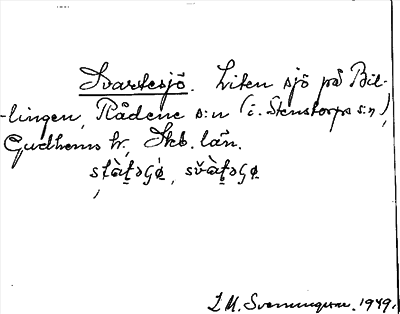 Svartesjö. Liten sjö på Bil-
-lingen, Rådene s:n (i. Stenstorps s:n),
Gudhems hr, Skb. län.
L M. Svenungsson. 1949.